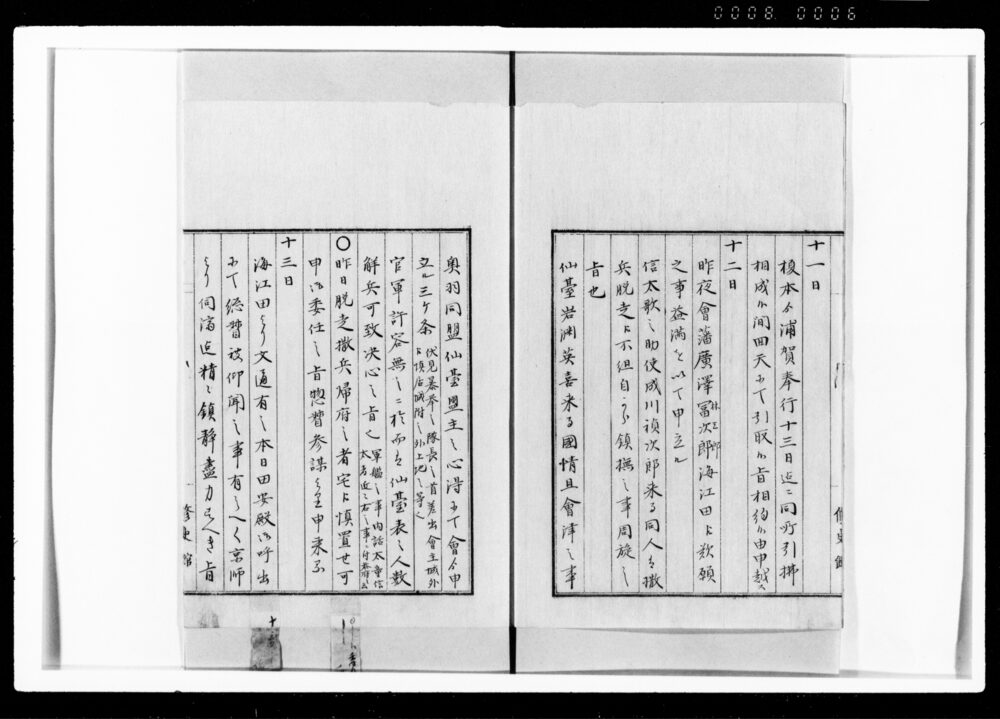 0008 0006
十一日
榎本ゟ浦賀奉行十三日迄ニ同所引拂
相成候間回天ニ而引取候旨相約候由申越ス
十二日
昨夜會藩廣澤冨次郎海江田ヘ歎願
之事益満ヲ以テ申立ル
信太歌之助使成川禎次郎来る同人ゟ撒
兵脱走ヘ不組自分鎮撫之事周旋之
旨也
仙臺岩渊英喜来る國情且會津之事
奥羽同盟仙臺盟主之心得ニ而會ゟ申
立ル三ケ条
伏見暴挙之隊長之首差出會主城外
ヘ頂居城附之外上地之等也
官軍許容無之ニ於而ハ仙臺表之人数
解兵可致决心之旨也
軍艦之事内話太童信
太方近之右之事
〇昨日脱走撒兵帰府之者宅ヘ慎置せ可
申御委任之旨惣督参謀ゟ申来る
十三日
海江田ゟ文通有之本日田安殿御呼出
ニ而総督被仰聞之事有之へく京師
ゟ伺済迄精々鎮静盡力すへき旨
修史館